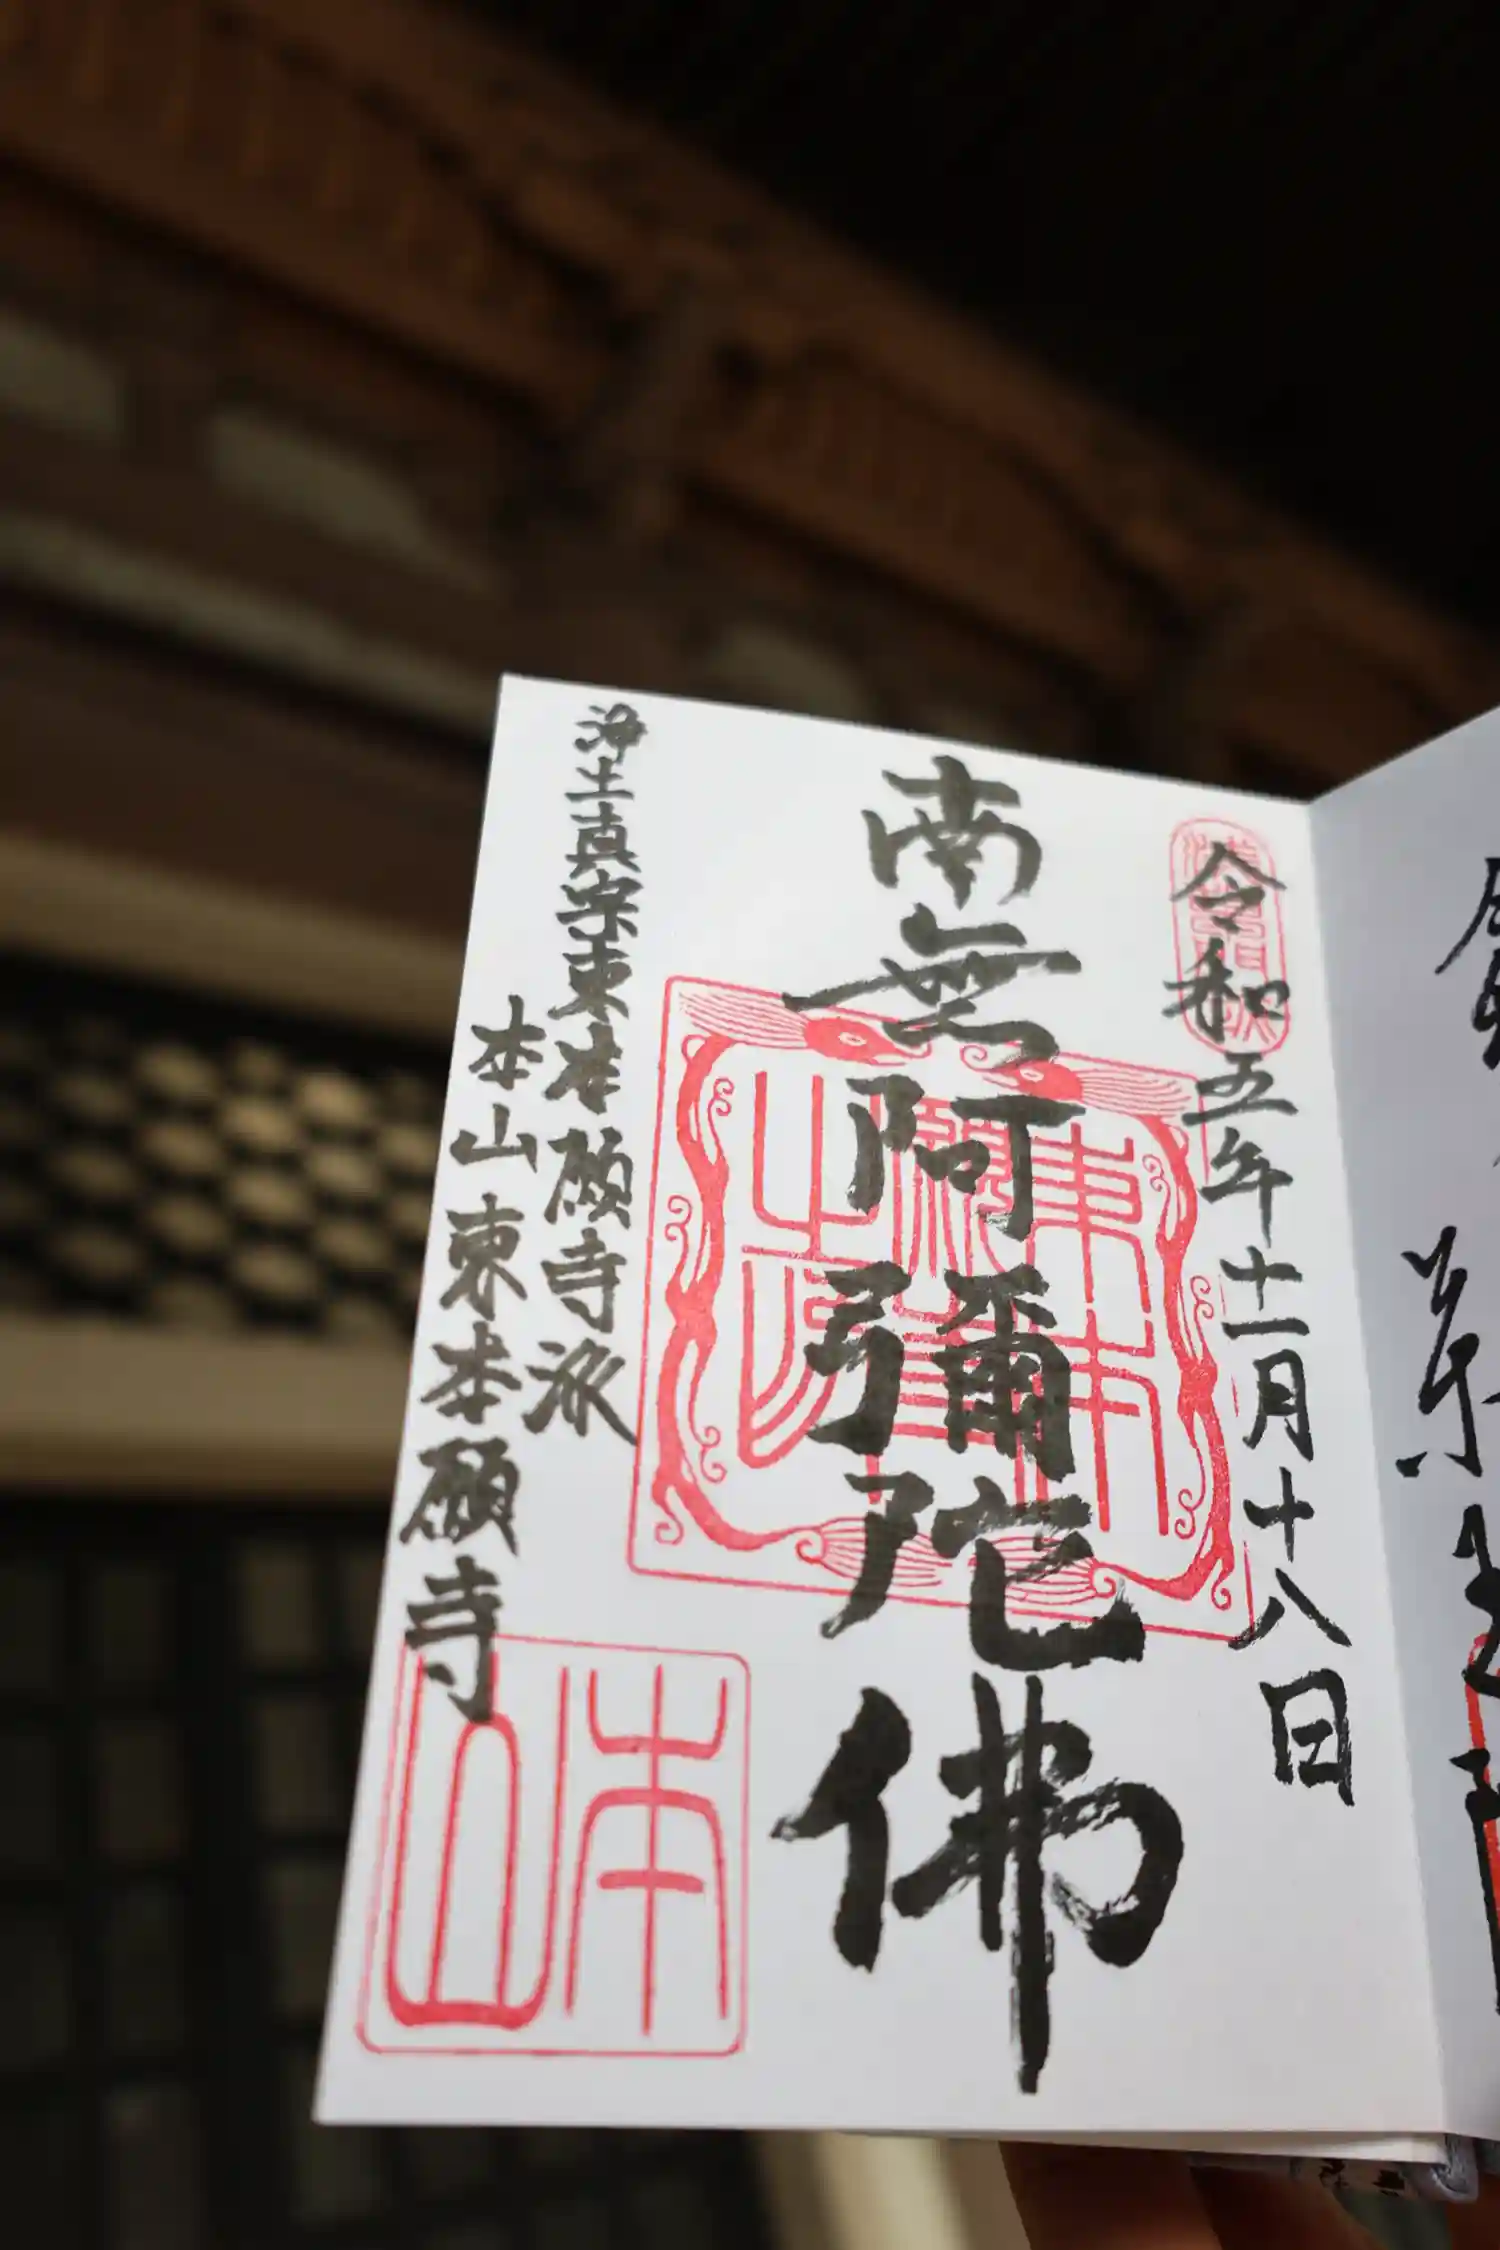 令和五年十一月十八日
南無阿彌陀佛
浄土真宗東本願寺派
本山東本願寺
東本
願寺
之印
本山